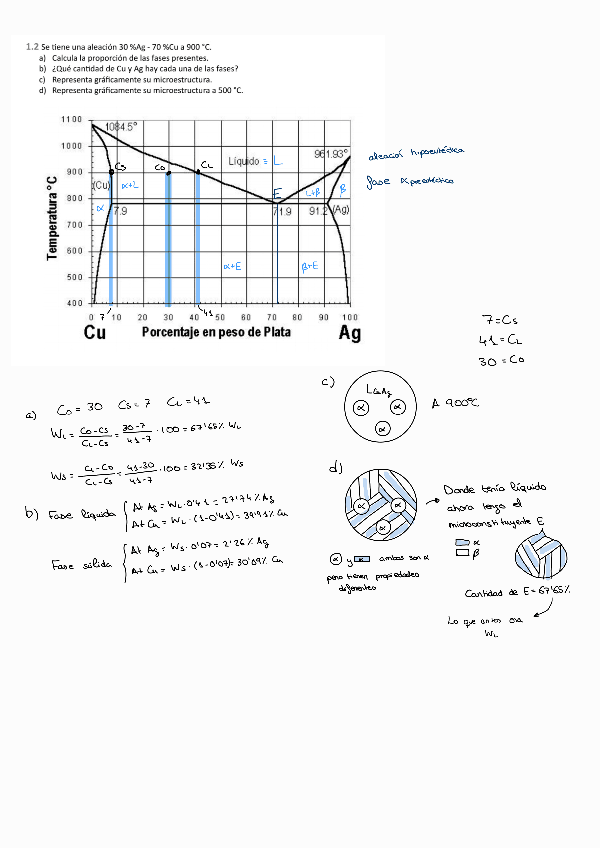 1.2 Se tiene una aleación 30 %Ag - 70 %Cu a 900 °C.
a) Calcula la proporción de las fases presentes.
b) ¿Qué cantidad de Cu y Ag hay cada una de las fases?
c) Representa gráficamente su microestructura.
d) Representa gráficamente su microestructura a 500 °C.
1100
1000
900
800
700
600
500
400
Temperatura °C
1084.5°
961.93°
Líquido = L
Cs
Co
CL
(Cu)
α+L
E
L+β
β
α
7.9
71.9
91.2
(Ag)
α+E
β+E
0 10 20 30 40 50 60 70 80 90 100
7
41
Cu
Porcentaje en peso de Plata
Ag
aleación hipoeutéctica
fase α proeutéctica
7 = Cs
41 = CL
30 = Co
a) Co = 30 Cs = 7 CL = 41
WL = Co-Cs / CL-Cs = 30-7 / 41-7 · 100 = 67'65% WL
Ws = CL-Co / CL-Cs = 41-30 / 41-7 · 100 = 32'35% Ws
b) Fase líquida
At Ag = WL · 0'41 = 27'74% Ag
At Cu = WL · (1-0'41) = 39'91% Cu
Fase sólida
At Ag = Ws · 0'07 = 2'26% Ag
At Cu = Ws · (1-0'07) = 30'09% Cu
c)
L
α α
α
A 900°C
d)
α α
α
Donde tenía líquido
ahora tengo el
microconstituyente E
α
β
α y α ambas son α
pero tienen propiedades
diferentes
Cantidad de E = 67'65%
Lo que antes era
WL